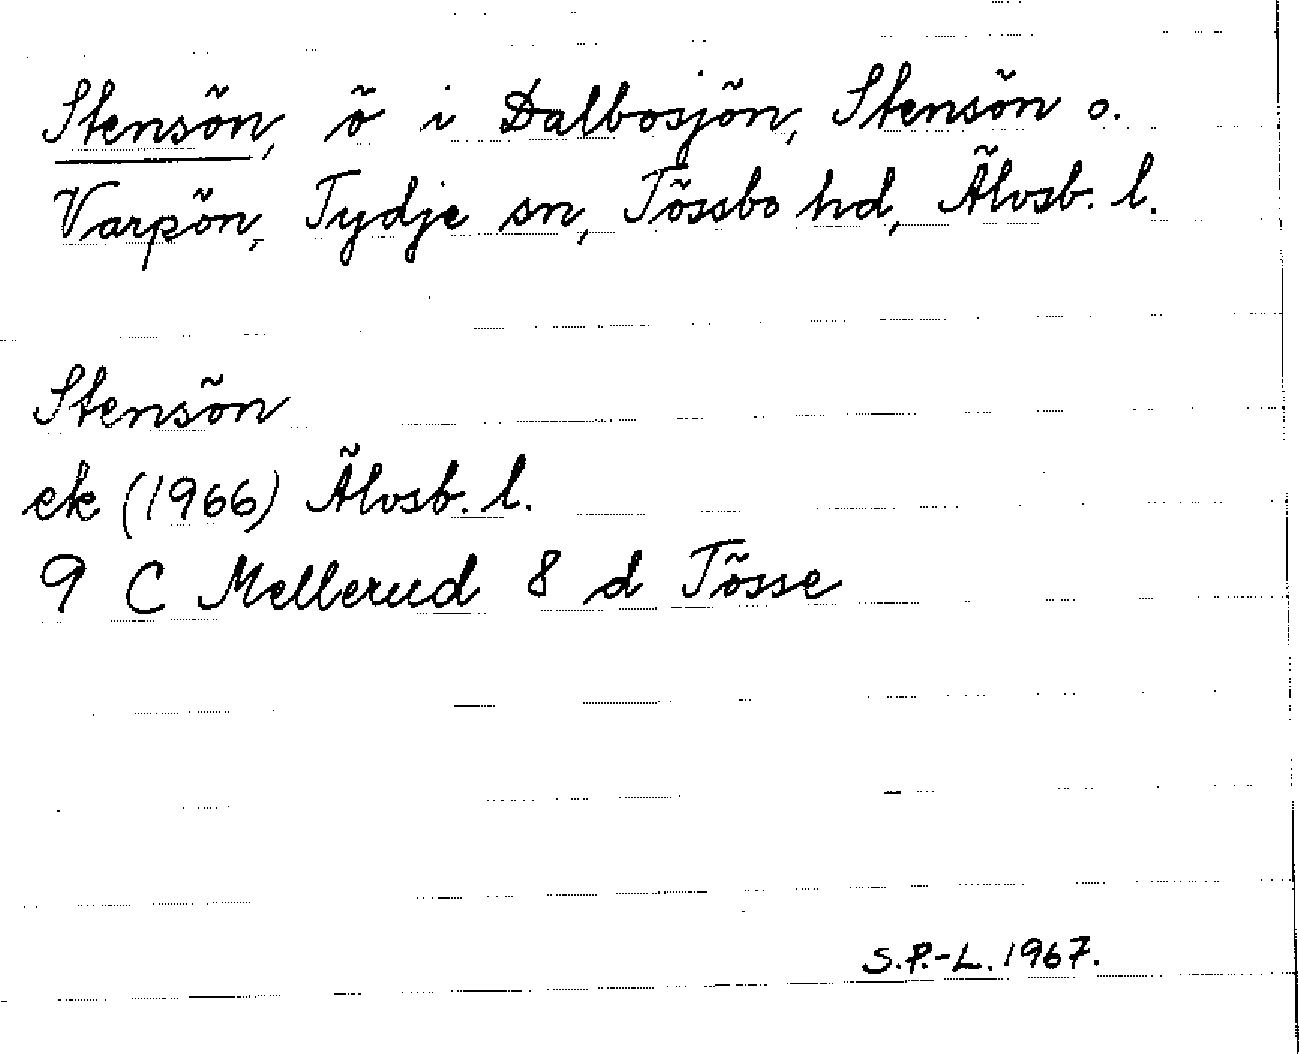 Stensön, ö i Dalbosjön, Stensön o.
Varpön, Tydje sn, Tössbo hd, Älvsb. l.
Stensön
ek (1966) Älvsb. l.
9 C Mellerud 8 d Tösse
S.P.-L. 1967.